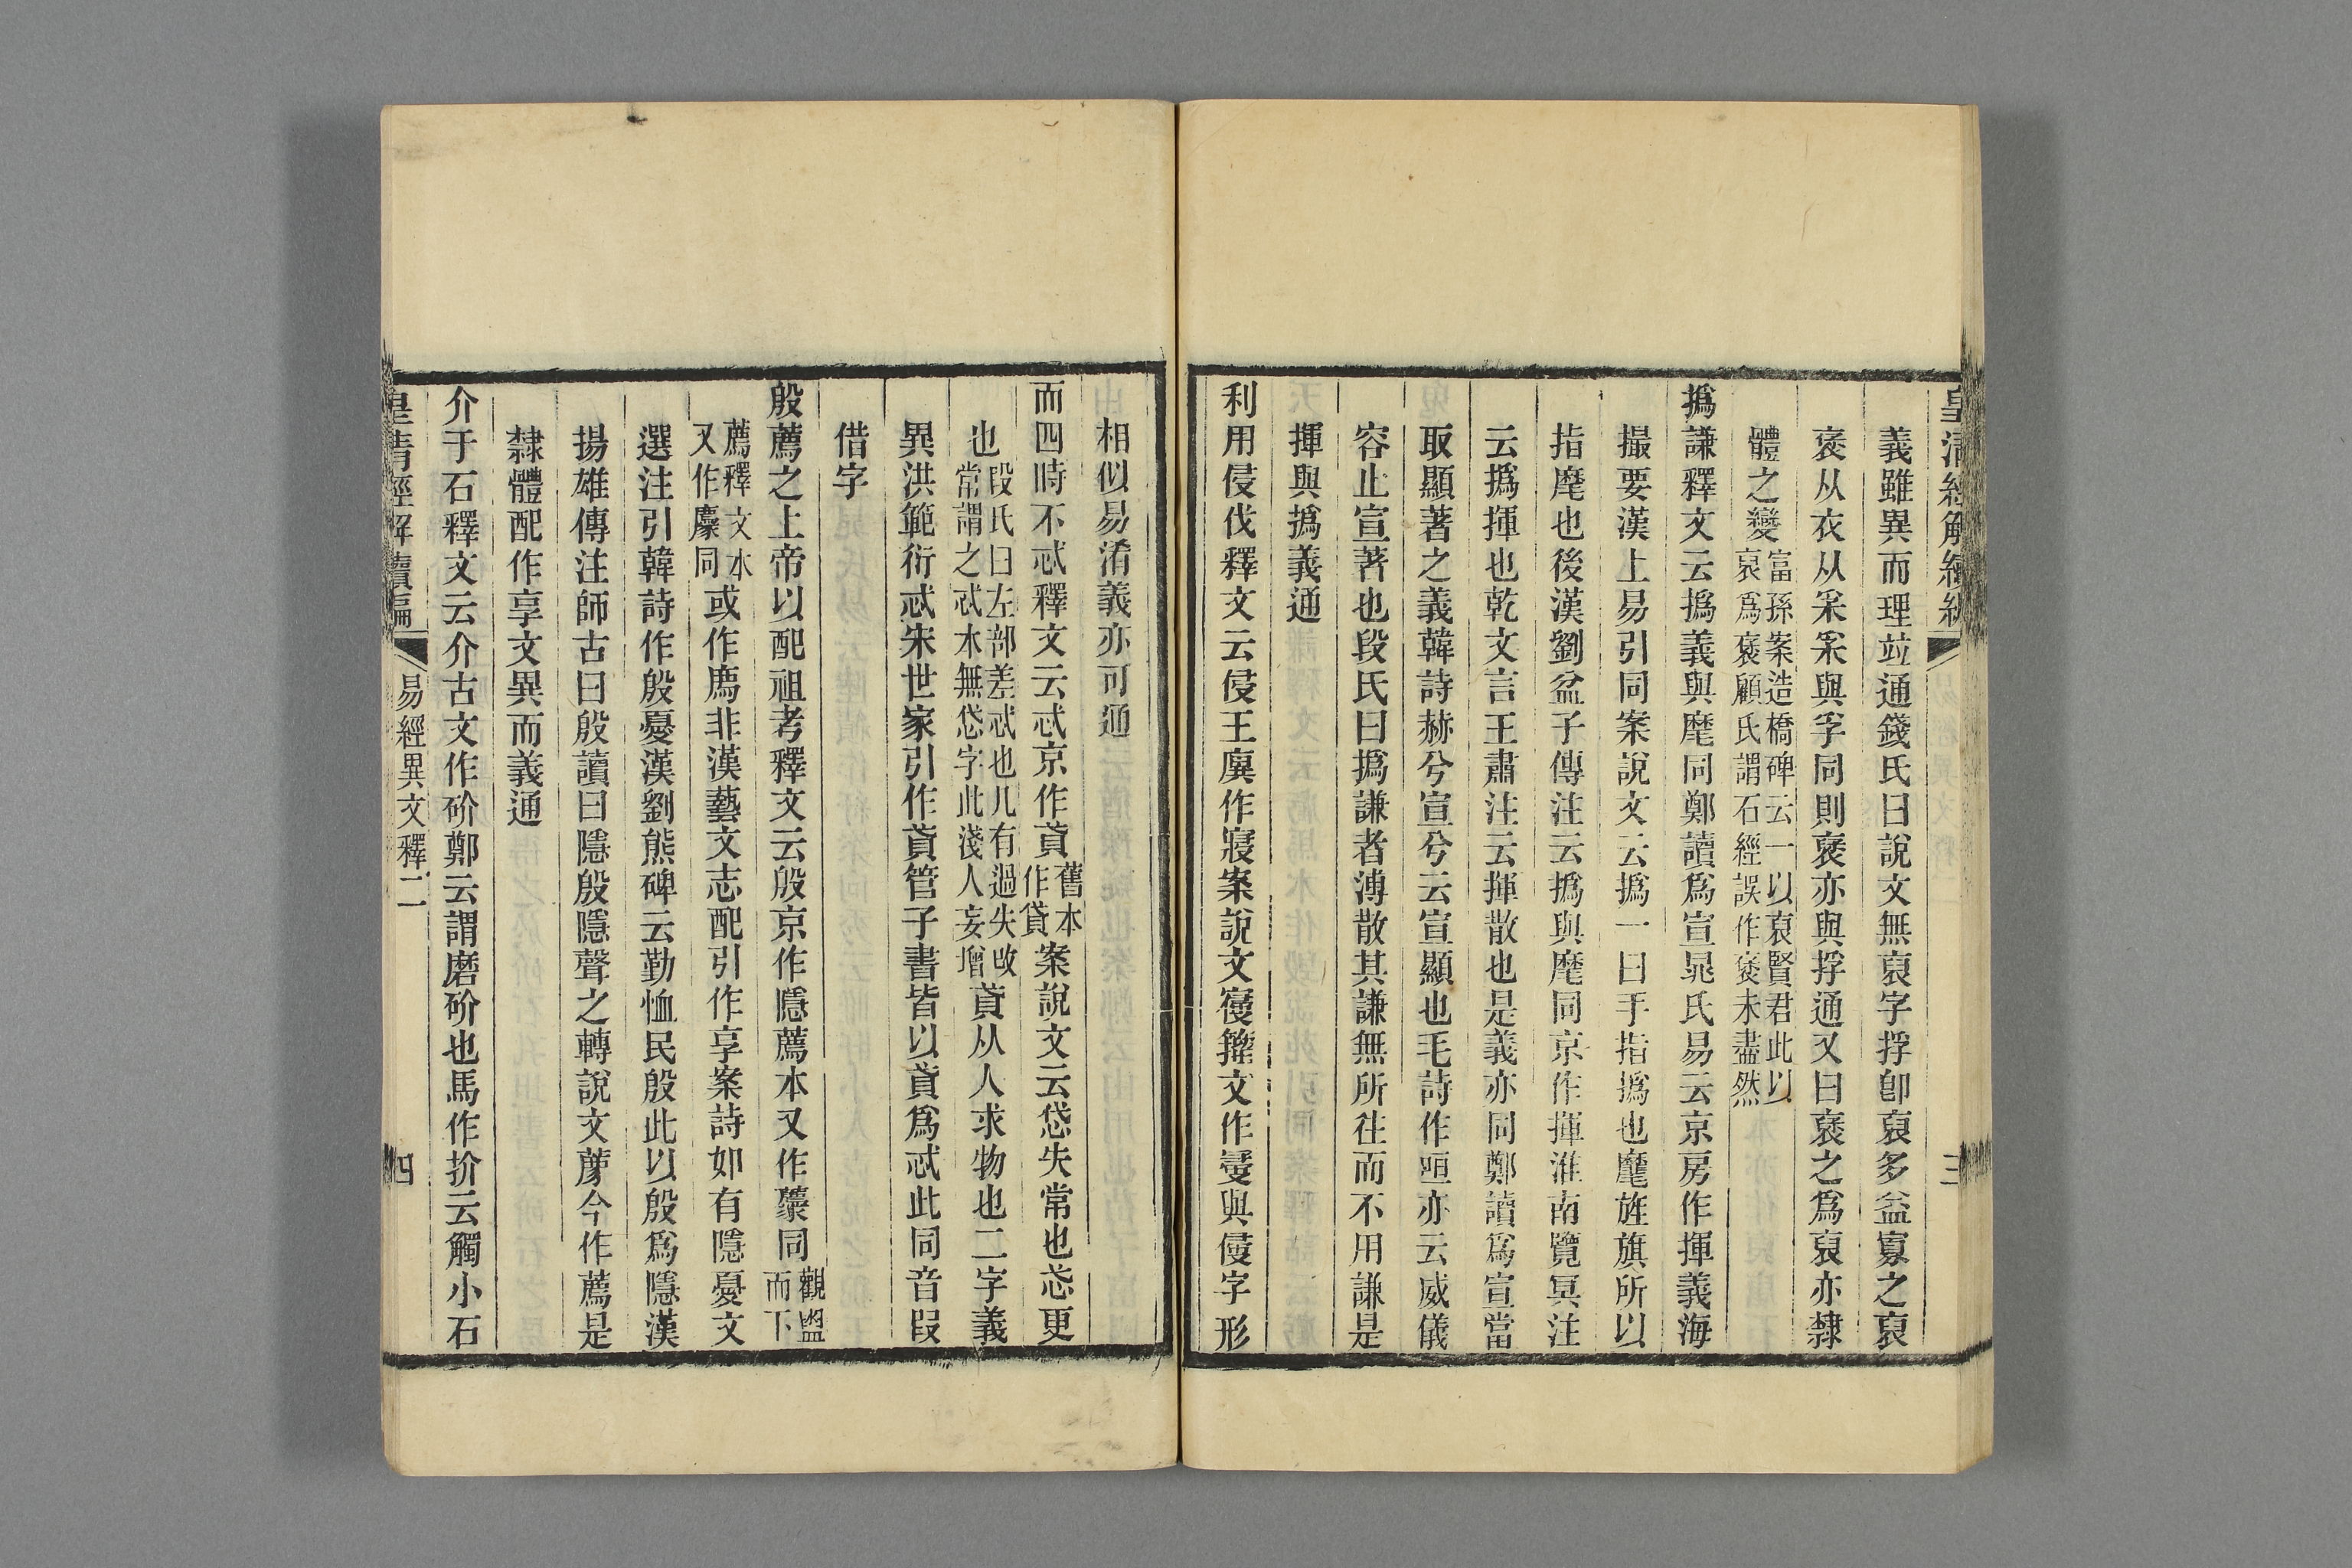 皇清經解續編
三
義雖異而理竝通錢氏曰說文無裒字捊卽裒多益寡之裒
褎从衣从采采與孚同則褎亦與捊通又曰褎之爲裒亦隸
體之變富孫案造橋碑云一以裒賢君此以
裒爲褎顧氏謂石經誤作褎未盡然
撝謙釋文云撝義與麾同鄭讀爲宣晁氏易云京房作揮義海
撮要漢上易引同案說文云撝一曰手指撝也麾旌旗所以
指麾也後漢劉盆子傳注云撝與麾同京作揮淮南覽冥注
云撝揮也乾文言王肅注云揮散也是義亦同鄭讀爲宣當
取顯著之義韓詩赫兮宣兮云宣顯也毛詩作咺亦云威儀
容止宣著也段氏曰撝謙者溥散其謙無所往而不用謙是
揮與撝義通
利用侵伐釋文云侵王廙作寢案說文寑籒文作㝲與侵字形
相似易淆義亦可通
而四時不忒釋文云忒京作貣舊本
作貸案說文云忒失常也忒更
也段氏曰左部差忒也凡有過失改
常謂之忒本無忒字此淺人妄增貣从人求物也二字義
異洪範衍忒宋世家引作貣管子書皆以貣爲忒此同音叚
借字
殷薦之上帝以配祖考釋文云殷京作隱薦本又作䕲同觀盥
而不
薦釋文本
又作䕲同或作廌非漢藝文志配引作享案詩如有隱憂文
選注引韓詩作殷憂漢劉熊碑云勤恤民殷此以殷爲隱漢
揚雄傳注師古曰殷讀曰隱殷隱聲之轉說文䕲今作薦是
隸體配作享文異而義通
介于石釋文云介古文作砎鄭云謂磨砎也馬作扴云觸小石
皇清經解續編
易經異文釋二
四